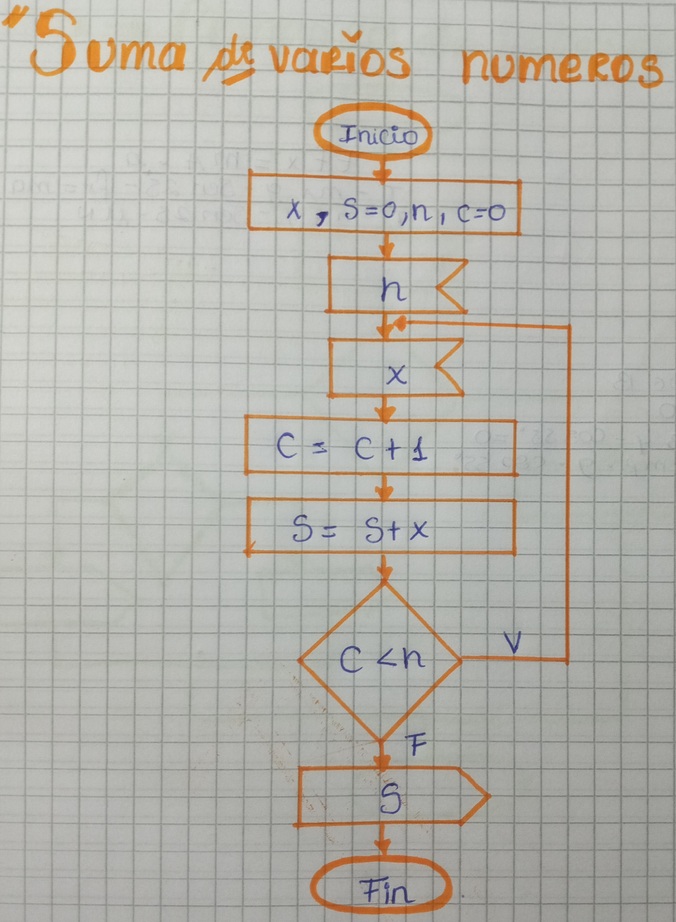 "Suma de varios numeros
Inicio
x, S=0, n, c=0
n
x
C = C+1
S = S+x
C<n
V
F
S
Fin